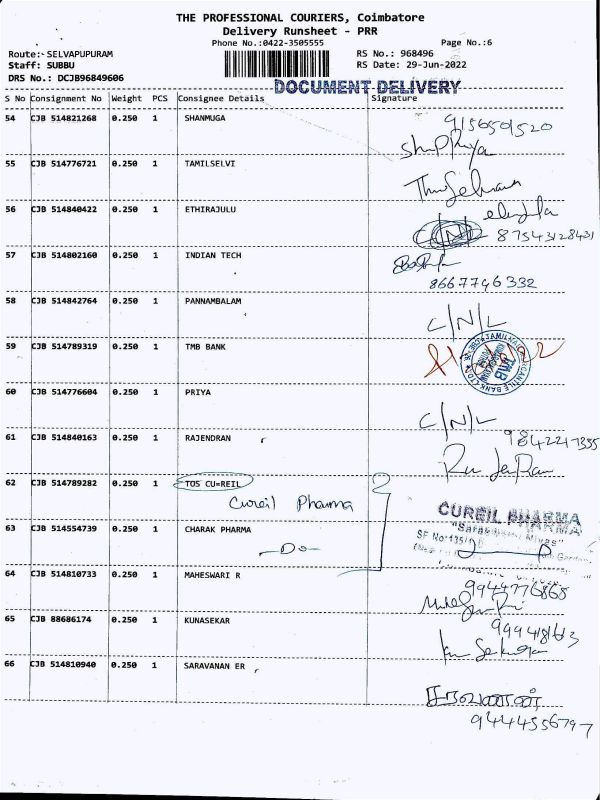 THE PROFESSIONAL COURIERS, Coimbatore
Delivery Runsheet - PRR
Phone No.:0422-3505555
Page No.:6
Route:- SELVAPUPURAM
RS No.: 968496
Staff: SUBBU
RS Date: 29-Jun-2022
DRS No.: DCJB96849606
DOCUMENT DELIVERY
S No Consignment No Weight PCS Consignee Details Signature
54 CJB 514821268 0.250 1 SHANMUGA
9156501520
55 CJB 514776721 0.250 1 TAMILSELVI
56 CJB 514840422 0.250 1 ETHIRAJULU
C/N/L 87543128431
57 CJB 514802160 0.250 1 INDIAN TECH
8667746332
58 CJB 514842764 0.250 1 PANNAMBALAM
C/N/L
59 CJB 514789319 0.250 1 TMB BANK
TMB
60 CJB 514776604 0.250 1 PRIYA
C/N/L
61 CJB 514840163 0.250 1 RAJENDRAN
62 CJB 514789282 0.250 1 TOS CU=REIL
Cureil Pharma
CUREIL PHARMA
63 CJB 514554739 0.250 1 CHARAK PHARMA
-Do-
64 CJB 514810733 0.250 1 MAHESWARI R
9944776868
65 CJB 88686174 0.250 1 KUNASEKAR
66 CJB 514810940 0.250 1 SARAVANAN ER
சரவணன்
9444556797